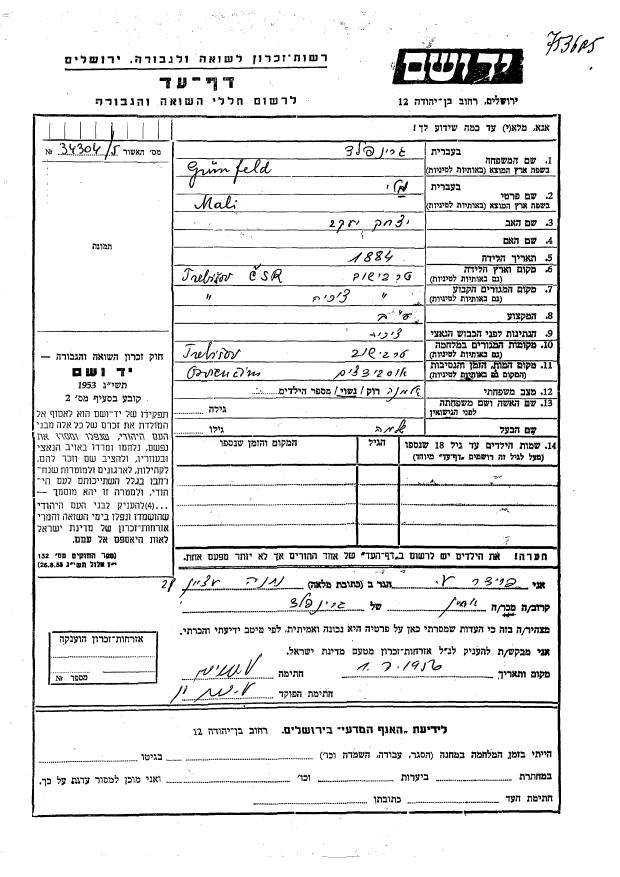 753685
רשות-זכרון לשואה ולגבורה, ירושלים
דף-עד
לרשום חללי השואה והגבורה
יד ושם
ירושלים, רחוב בן-יהודה 12
אנא, מלא(י) עד כמה שידוע לך!
מס׳ האשור 34304/5 №
תמונה
1. שם המשפחה
בעברית גרינפלד
בשפת ארץ המוצא (באותיות לטיניות) Grünfeld
2. שם פרטי
בעברית מלי
בשפת ארץ המוצא (באותיות לטיניות) Mali
3. שם האב יצחק יעקב
4. שם האם
5. תאריך הלידה 1884
6. מקום וארץ הלידה (גם באותיות לטיניות) טרבישוב Trebišov ČSR
7. מקום המגורים הקבוע (גם באותיות לטיניות) " צ'כיה "
8. המקצוע
9. הנתינות לפני הכבוש הנאצי
10. מקומות המגורים במלחמה (גם באותיות לטיניות) טרבישוב Trebišov
11. מקום המות, הזמן והנסיבות (המקום גם באותיות לטיניות)
12. מצב משפחתי אלמנה רוק/נשוי/מספר הילדים
13. שם האשה ושם משפחתה לפני הנישואין גילה:
שם הבעל שלמה גילו:
14. שמות הילדים עד גיל 18 שנספו (מעל לגיל זה רושמים ״דף-עד״ מיוחד)
הגיל
המקום והזמן שנספו
חוק זכרון השואה והגבורה —
יד ושם
תשי״ג 1953
קובע בסעיף מס׳ 2
תפקידו של יד-ושם הוא לאסוף אל
המולדת את זכרם של כל אלה מבני
העם היהודי, שנפלו ומסרו את
נפשם, נלחמו ומרדו באויב הנאצי
ובעוזריו, ולהציב שם וזכר להם,
לקהילות, לארגונים ולמוסדות שנח-
רבו בגלל השתייכותם לעם היהו-
די, ולמטרה זו יהא מוסמך —
...(4) להעניק לבני העם היהודי
שהושמדו ונפלו בימי השואה והמרי
אזרחות-זכרון של מדינת ישראל
לאות היאספם אל עמם.
(ספר החוקים מס׳ 132
י״ז אלול תשי״ג 28.8.53)
הערה! את הילדים יש לרשום ב״דף-העד״ של אחד ההורים אך לא יותר מפעם אחת.
אני הגר ב (כתובת מלאה)
קרוב/ה מכר/ה של גרינפלד
מצהיר/ה בזה כי העדות שמסרתי כאן על פרטיה היא נכונה ואמיתית, לפי מיטב ידיעתי והכרתי.
אני מבקש/ת להעניק לנ״ל אזרחות-זכרון מטעם מדינת ישראל.
מקום ותאריך 1956 חתימה
חתימת הפוקד
אזרחות-זכרון הוענקה
מספר №
לידיעת ״האגף המדעי״ בירושלים, רחוב בן-יהודה 12
הייתי בזמן המלחמה במחנה (הסגר, עבודה, השמדה וכו׳) בגיטו
במחתרת ביערות וכו׳ ואני מוכן למסור עדות על כך.
חתימת העד כתובתו